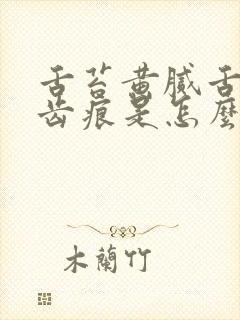 舌苔黄腻舌
齿痕是怎麼
木蘭竹